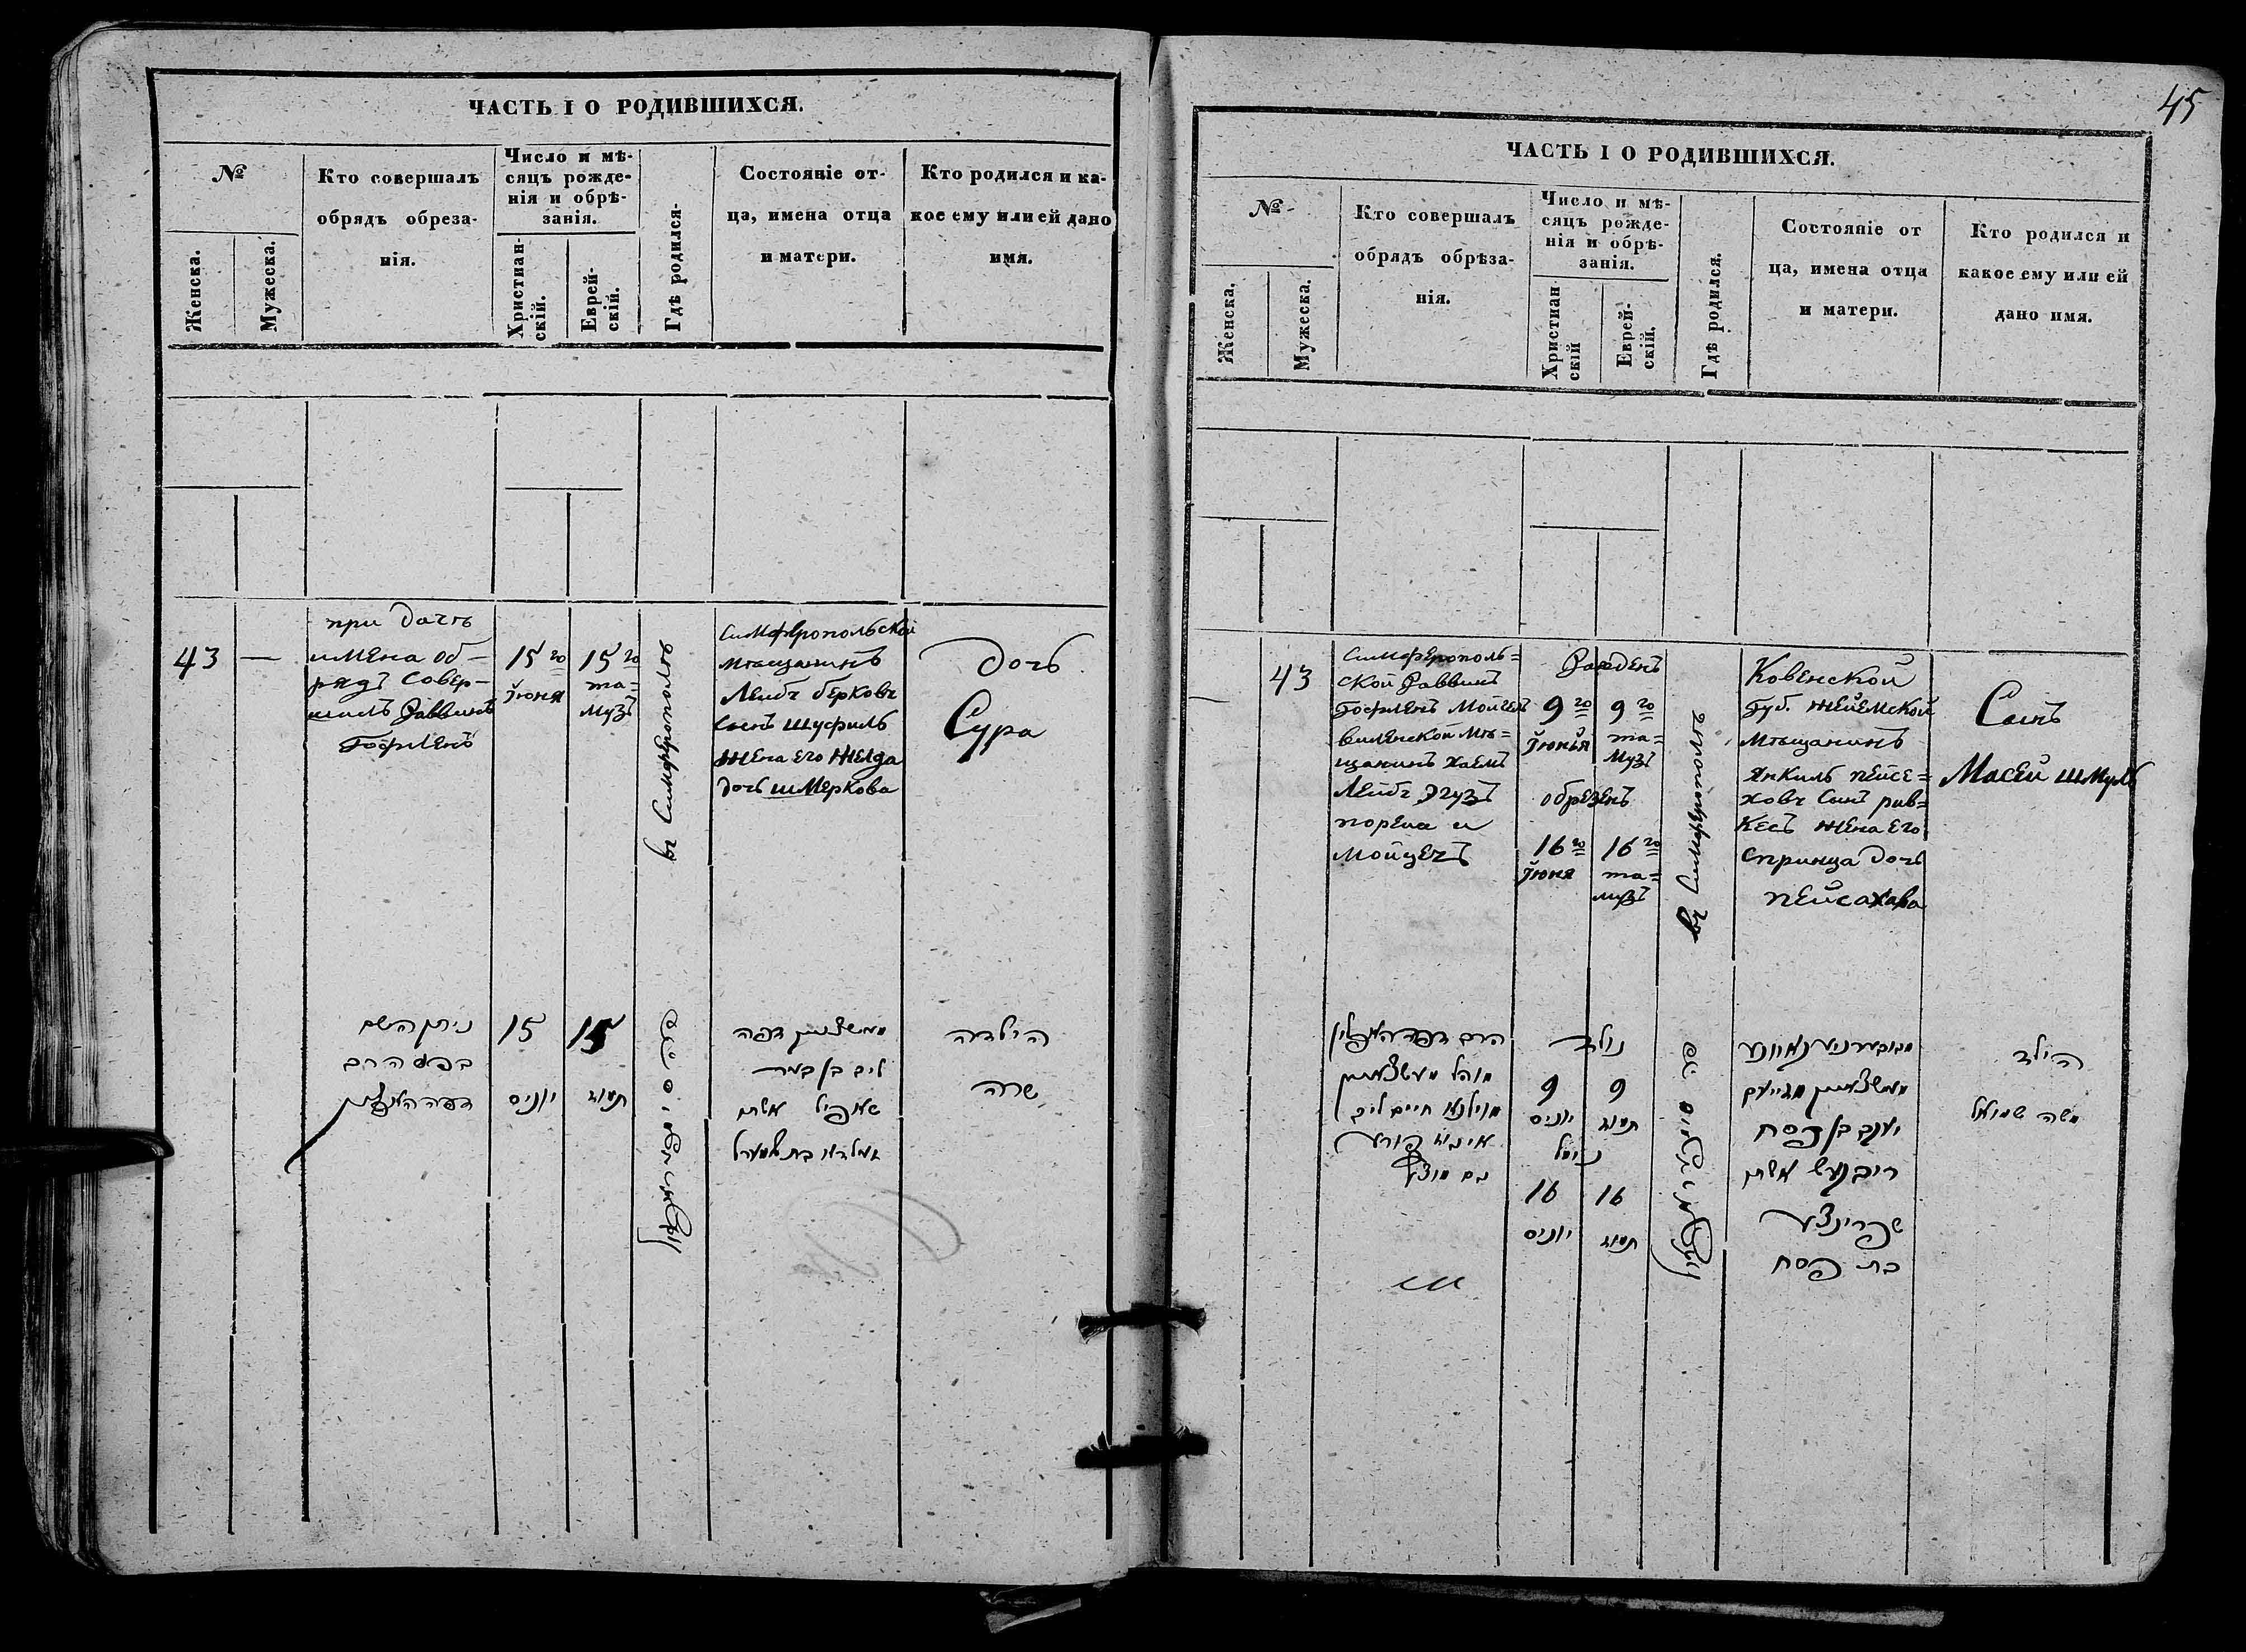 ЧАСТЬ I О РОДИВШИХСЯ.
№
Женска.
Мужеска.
Кто совершалъ
обрядъ обреза-
нія.
Число и мѣ-
сяцъ рожде-
нія и обрѣ-
занія.
Христиан-
скій.
Еврей-
скій.
Гдѣ родился.
Состояніе от-
ца, имена отца
и матери.
Кто родился и ка-
кое ему или ей дано
имя.
43
—
при дачѣ
имена об-
рядъ совер-
шилъ Раввинъ
Гофленъ
15го
Іюня
15го
та-
музъ
въ Симферополѣ
Симферопольской
мѣщанинъ
Лейбъ берковъ
сынъ шуфиль
жена его Желда
дочь шмеркова
дочь
Сура
ניתן השם
הרב
15
יוניס
15
תמוז
ליב בן
אשת
בת
הילדה
שרה
45
ЧАСТЬ I О РОДИВШИХСЯ.
№
Женска.
Мужеска.
Кто совершалъ
обрядъ обрѣза-
нія.
Число и мѣ-
сяцъ рожде-
нія и обрѣ-
занія.
Христиан
скій
Еврей-
скій.
Гдѣ родился.
Состояніе от
ца, имена отца
и матери.
Кто родился и
какое ему или ей
дано имя.
—
43
Симферополь=
ской Раввинъ
Гофленъ Мойгелъ
виленской мѣ=
щанинъ хаемъ
Лейбъ
порела и
мойцехъ
Рожденъ
9го
Іюнья
9го
та=
музъ
обрезенъ
16го
Іюня
16го
та=
музъ
въ Симферополѣ
Ковенской
Губ. жеймской
мѣщанинъ
Янкиль пейсе=
ховъ сынъ рив=
кесъ жена его
спринца дочь
пейсахава
Сынъ
Масей шмуль
הרב
מוהל
מווילנא חיים ליב
נולד
9
יוניס
9
תמוז
נימל
16
יוניס
16
תמוז
יעקב בן פסח
ריבקעס אשת
שפרינצע
בת פסח
הילד
משה שמואל